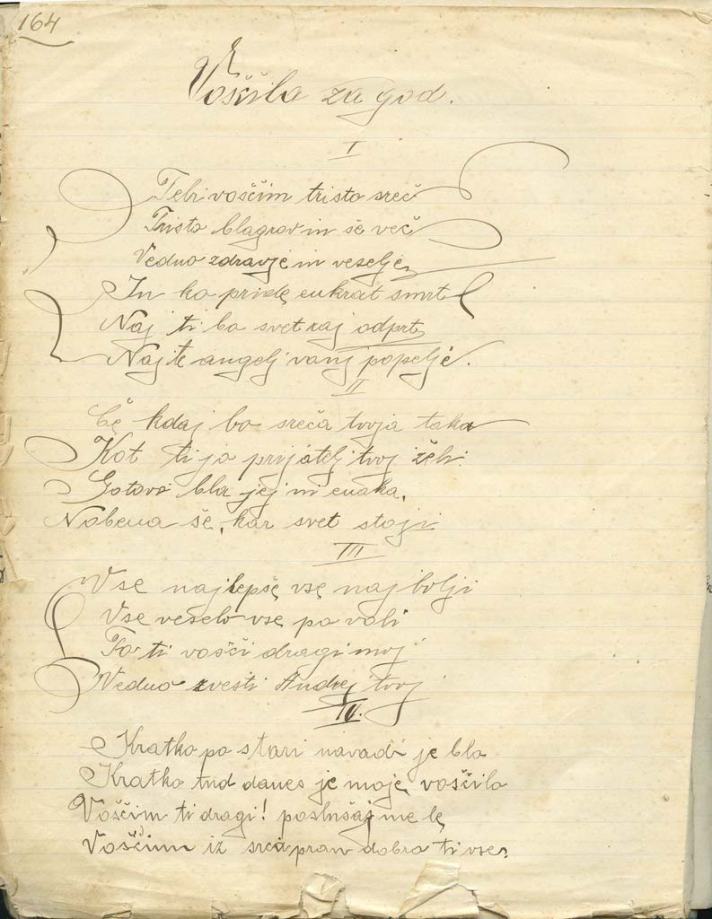 164
Voščila za god.
I
Tebi voščim tristo sreč
Tristo blagrov in še več
Vedno zdravje in veselje,
In ko pride enkrat smrt
Naj ti bo svet raj odprt,
Naj te angelj vanj popelje.
II
Če kdaj bo sreča tvoja taka
Kot ti jo prijatelj tvoj želi.
Gotovo bla jej ni enaka,
Nobena še, kar svet stoji
III
Vse najlepše vse najbolji
Vse veselo vse po voli
To ti vošči dragi moj
Vedno zvesti Andrej tvoj
IV.
Kratko po stari navadi je blo
Kratko tud danes je moje voščilo
Voščim ti dragi! poslušaj me le
Voščim iz srca prav dobro ti vse.